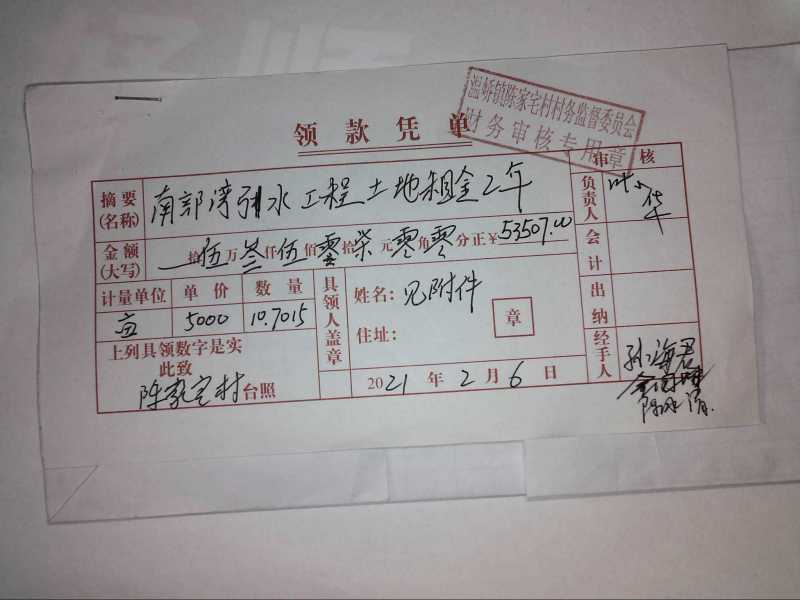 温峤镇陈家宅村村务监督委员会
财务审核专用章
领款凭单
审核
摘要(名称) 南部湾引水工程土地租金2年
负责人 叶小华
金额(大写) 拾伍万叁仟伍佰零拾柒元零角零分正¥53507.00
会计
计量单位 单价 数量
亩 5000 10.7015
具领人盖章
姓名: 见附件
住址:
章
出纳
上列具领数字是实
此致
陈家宅村台照
2021年2月6日
经手人 孙海君